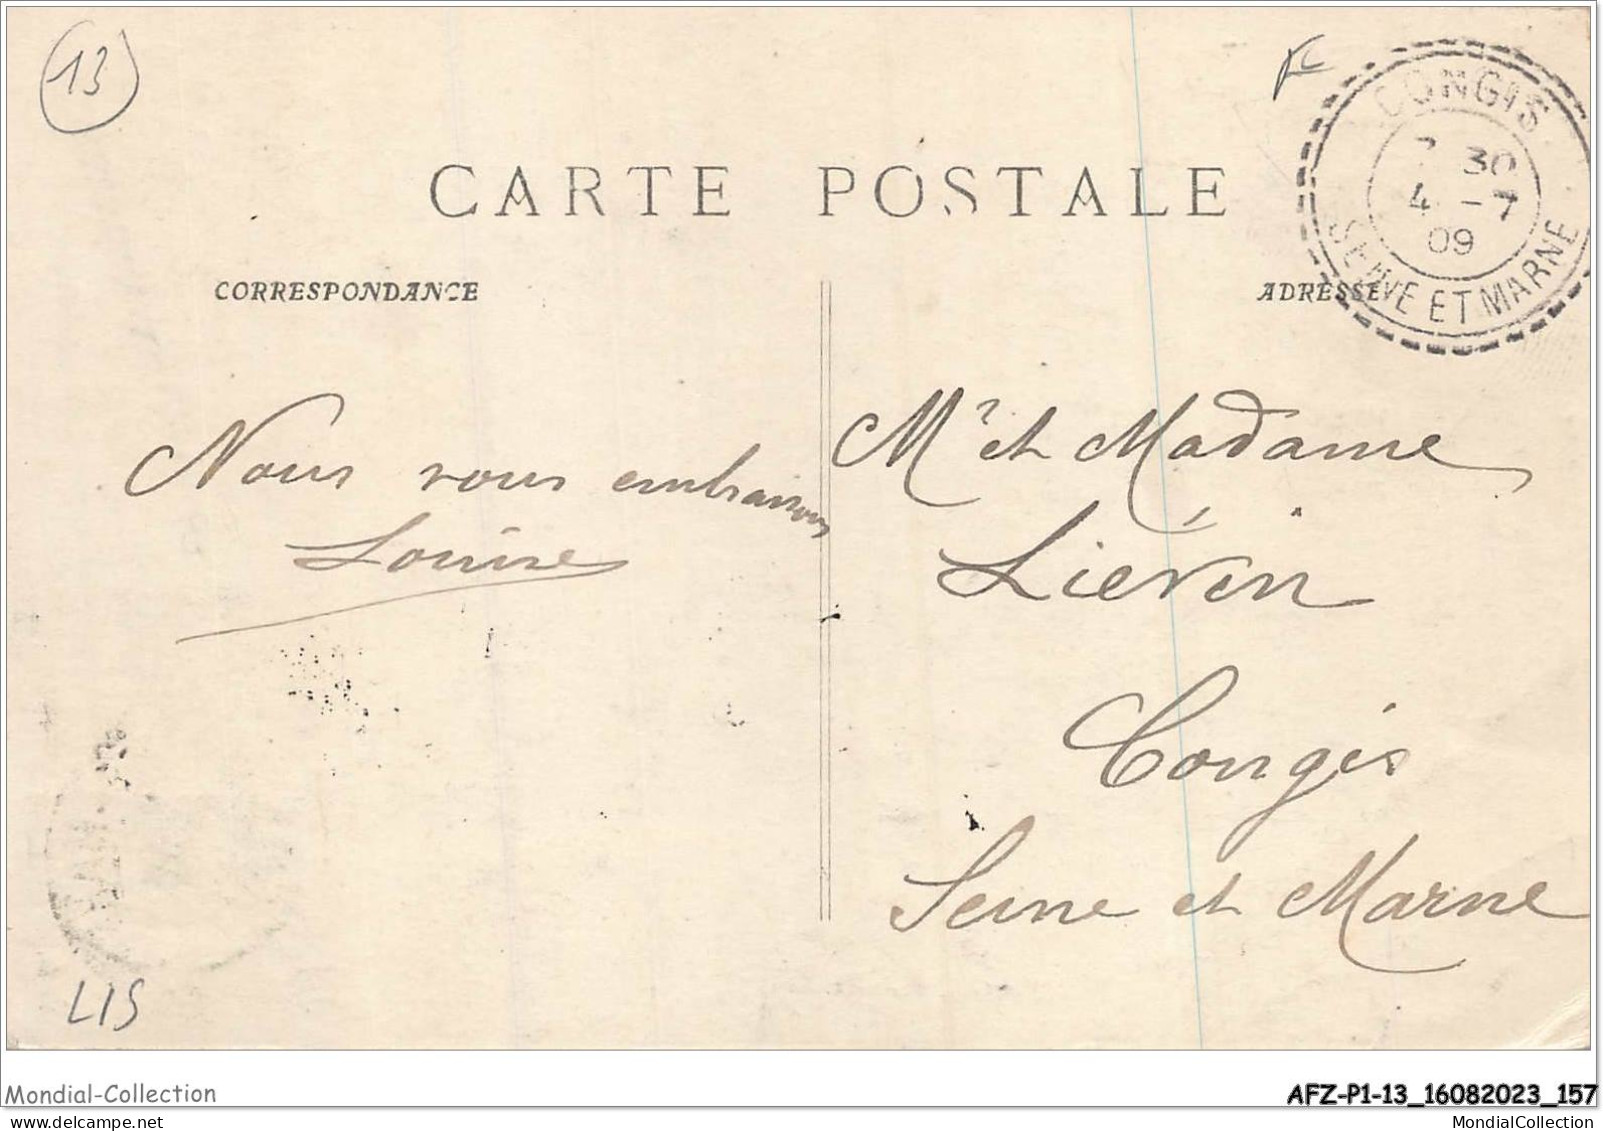 13
FC
CONGIS
7 30
4 - 7
09
SEINE ET MARNE
CARTE POSTALE
CORRESPONDANCE
ADRESSE
Nous vous embrassons
Louise
Mr et Madame
Liévin
Congis
Seine et Marne
LIS
Mondial-Collection
AFZ-P1-13_16082023_157
delcampe.net
MondialCollection